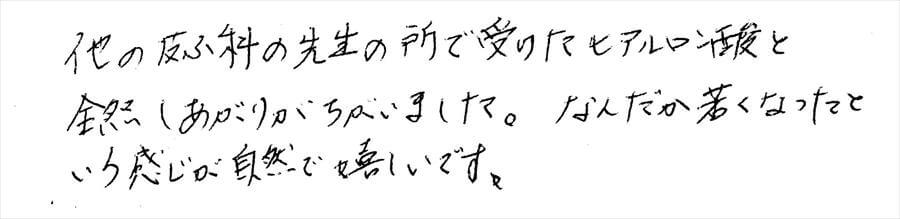 他の皮ふ科の先生の所で受けたヒアルロン酸と
全然しあがりがちがいました。なんだか若くなったと
いう感じが自然で嬉しいです。